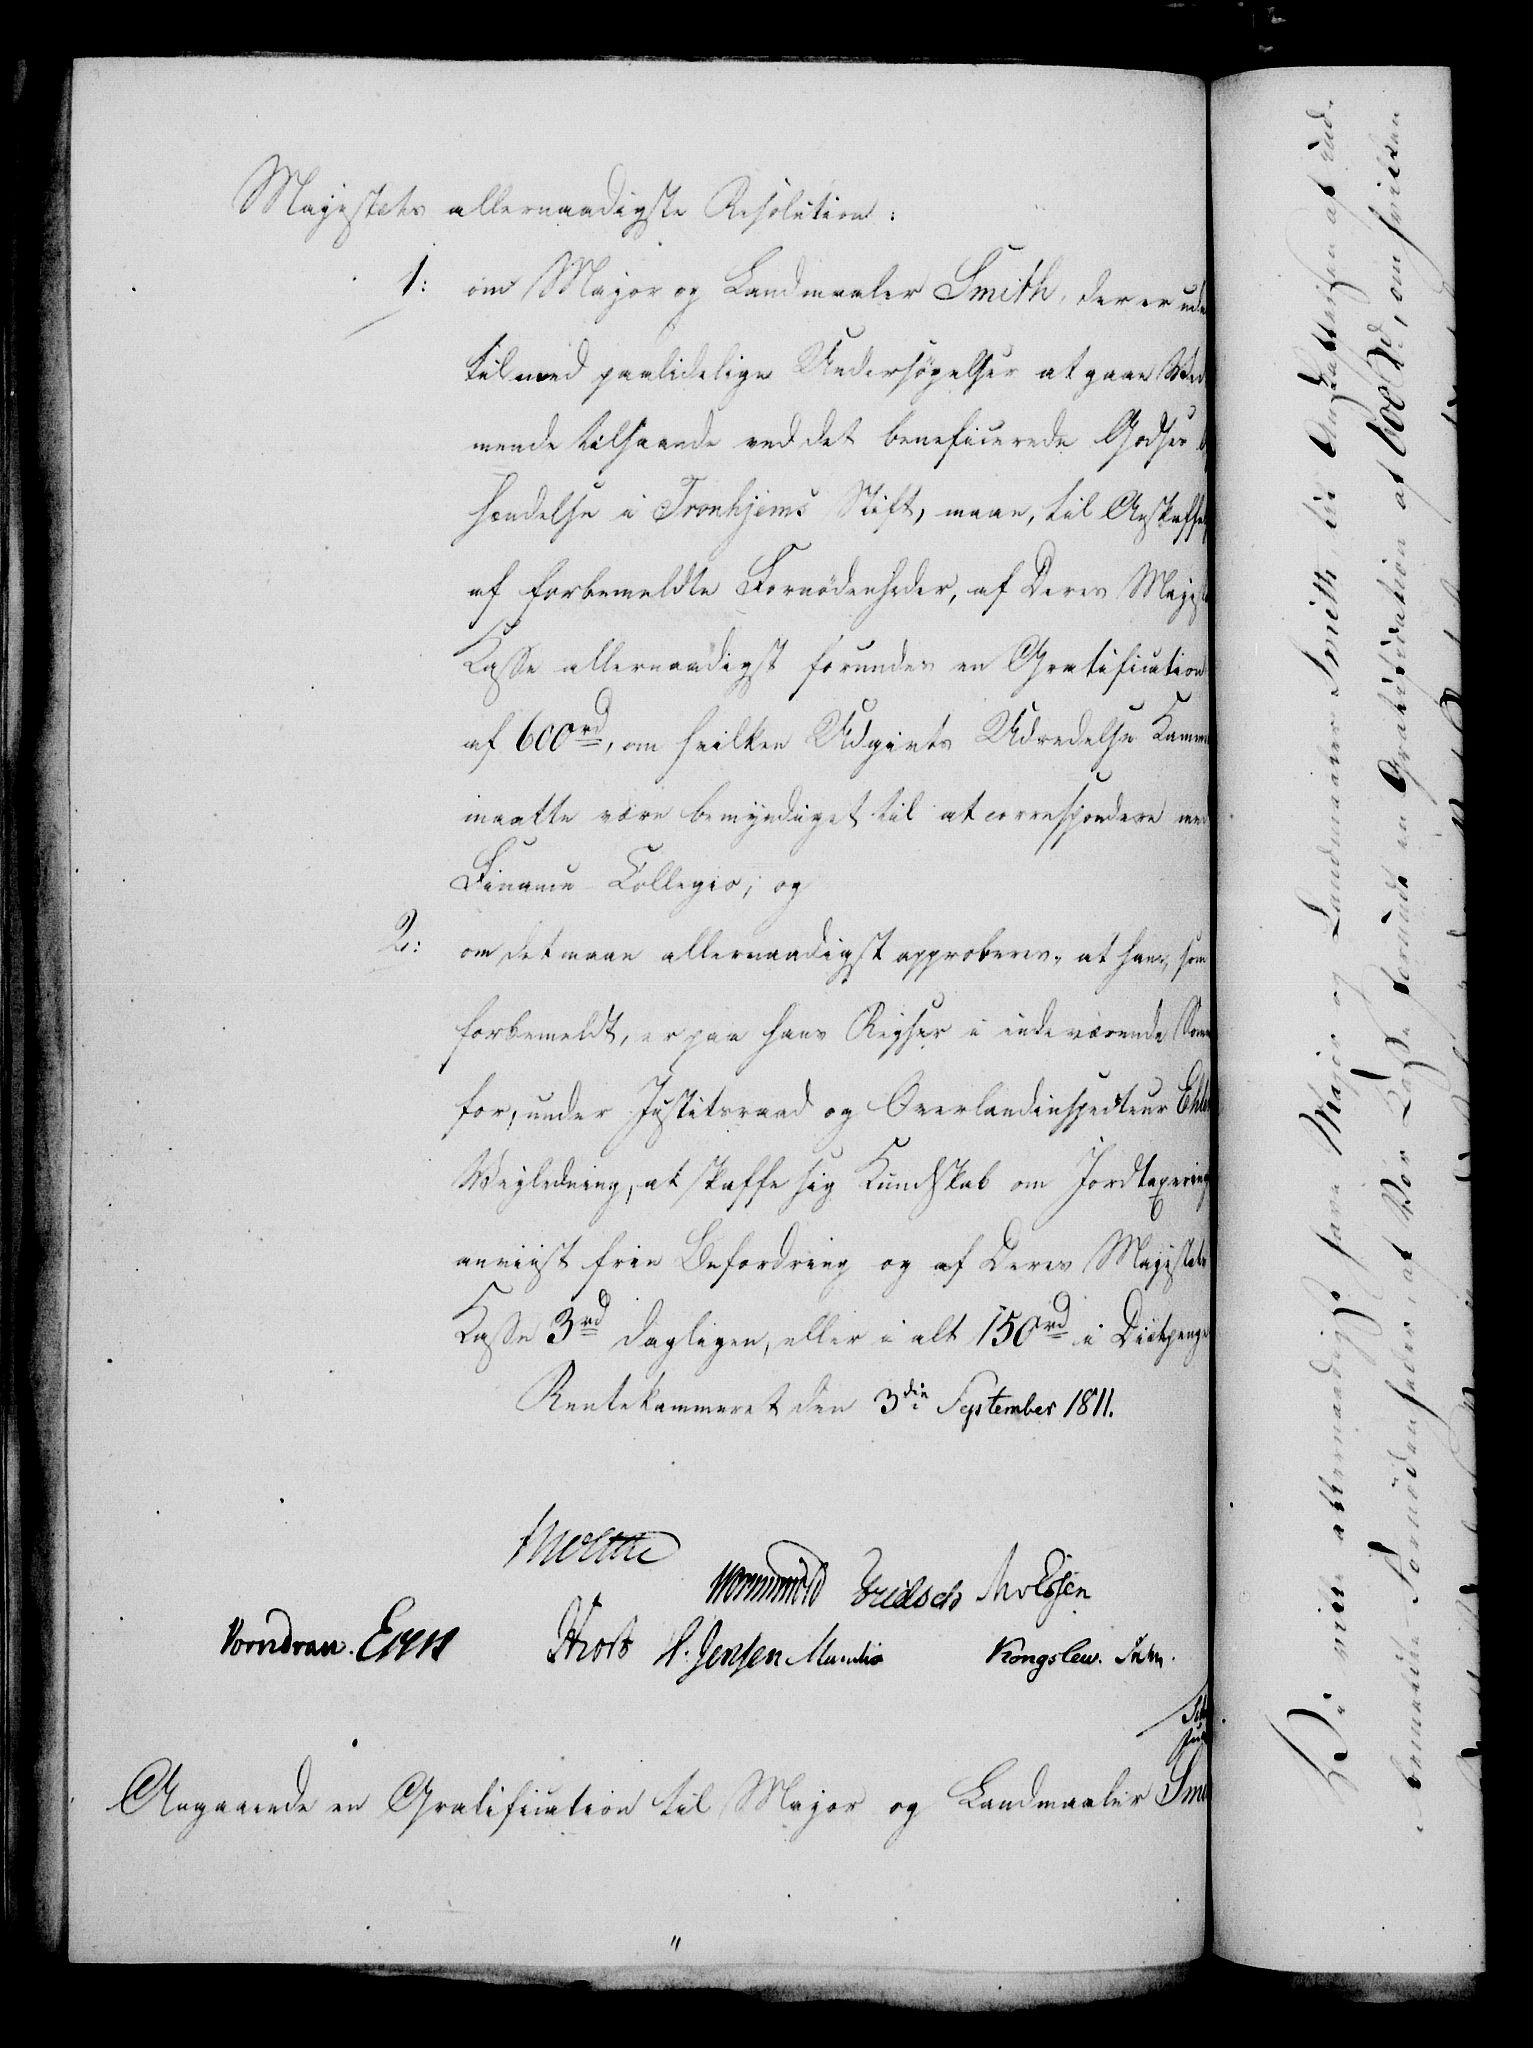 Majestæts allernaadigste Resolution:
1: om Major og Landmaaler Smith, der er ude
til med paalidelige Undersøgelser at gaae Ved
mende tilhaande ved det beneficerede Godses
hændelse i Tronhjems Stift, maae, til Anskaffel
af forbemeldte Fornødenheder, af Deres Majest
Kasse allernaadigst forundes en Gratification
af 600 rd, om hvilken Udgivts Udredelse Kamme
maatte være bemyndiget til at correspondere med
Finants Collegio; og
2: om det maae allernaadigst approberes, at ham, som
forbemeldt, er paa hans Reyser i indeværende Som
for, under Justitsraad og Overlandinspecteur Ehle
Veyledning, at skaffe sig Kundskab om Jordtaxering
anviist frie Befordring og af Deres Majestæts
Kasse 3 rd dagligen, eller i alt 150 rd i Diætpenge
Rentekammeret den 3die September 1811.
Moltke
Wormskiold Fridsch MvEssen
Vorndran. Eyen Knorb H. Jensen Mandix Kongslew.
Angaaende en Gratification til Major og Landmaaler Smi
Vi ville allernaadigst have Major og Landmaaler Smith, til Anskaffelsen af ind-
bemeldte Fornødenheder, af Vor Kasse forundt en Gratification af 600 Rd, om hvilken